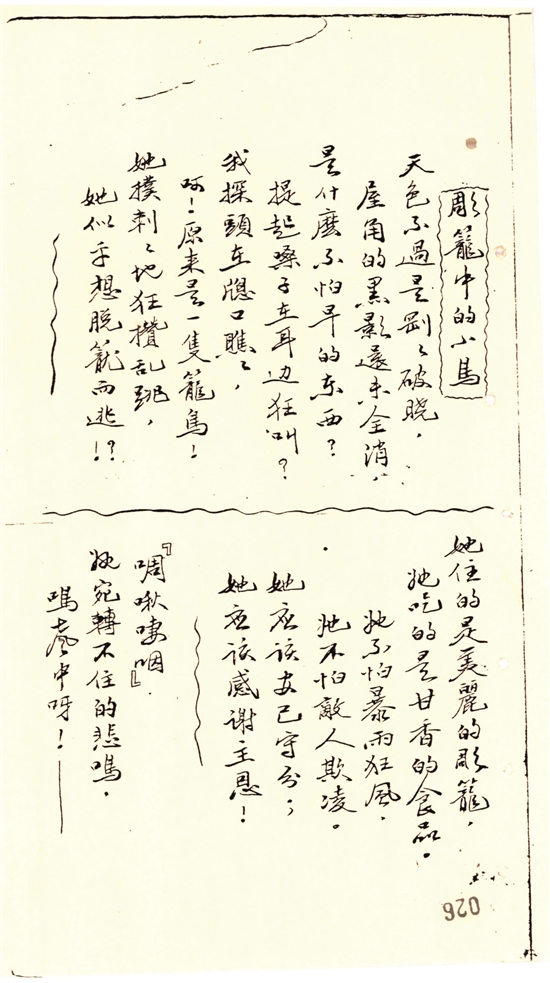 彫籠中的小鳥
天色不過是剛々破曉，
屋角的黑影還未全消，
是什麼不怕早的东西？
提起嗓子在耳边狂叫？
我探頭在牕口瞧々，
呵！原来是一隻籠鳥！
她撲刺々地狂攢乱跳，
她似乎想脱籠而逃！？
她住的是美麗的彫籠，
她吃的是甘香的食品。
她不怕暴雨狂风，
她不怕敵人欺凌。
她应该安己守分；
她应该感谢主恩！
『啁啾咽』
她宛轉不住的悲鳴，
鳴中呀！
026